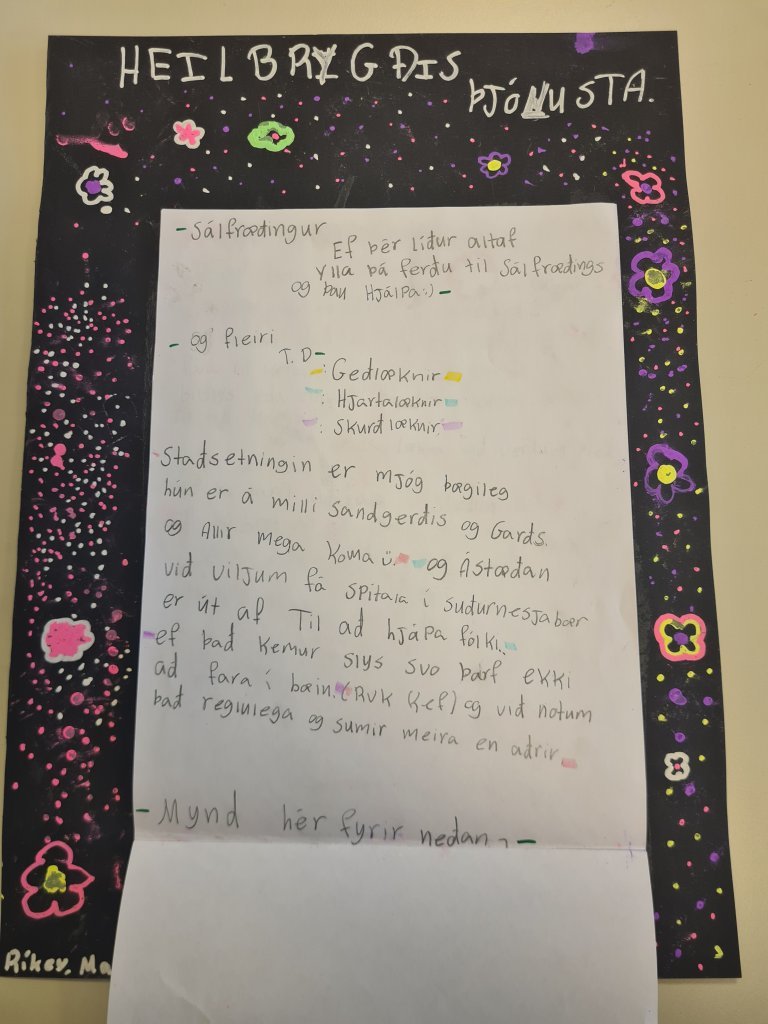 HEILBRYGÐIS
ÞJÓNUSTA.
- Sálfrædingur
Ef þér líður altaf
ylla þá ferðu til Sálfrædings
og þau Hjálpa :) -
- og fleiri
T.D -
: Geðlæknir
: Hjartalæknir
: Skurðlæknir
Staðsetningin er mjög þægileg
hún er á milli Sandgerðis og Garðs.
og Allir mega Koma ü. og Ástæðan
við viljum fá Spítala í suðurnesjabær
er út af Til að hjápa fólki.
ef það Kemur slys svo þarf ekki
að fara í bæin. (RVK Kef) og við notum
það reglulega og sumir meira en aðrir
- Mynd hér fyrir neðan -
Ríkey. Ma